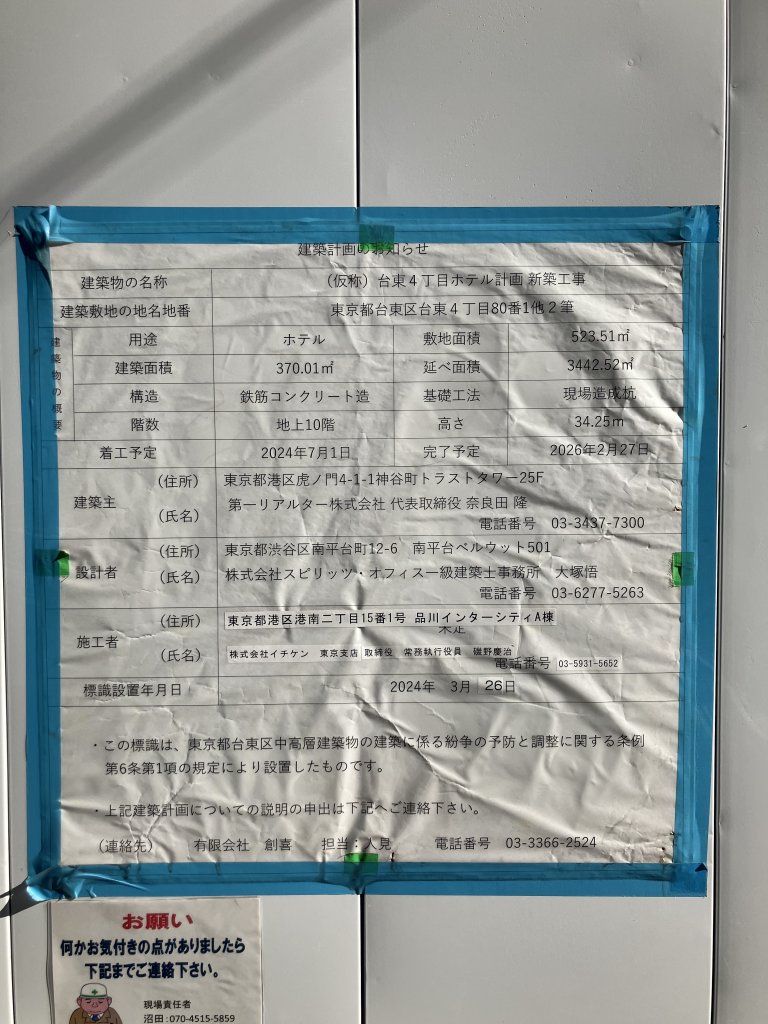 建築計画のお知らせ
建築物の名称 （仮称）台東４丁目ホテル計画 新築工事
建築敷地の地名地番 東京都台東区台東４丁目80番1他２筆
建築物の概要
用途 ホテル 敷地面積 523.51㎡
建築面積 370.01㎡ 延べ面積 3442.52㎡
構造 鉄筋コンクリート造 基礎工法 現場造成杭
階数 地上10階 高さ 34.25ｍ
着工予定 2024年7月1日 完了予定 2026年2月27日
建築主 （住所） 東京都港区虎ノ門4-1-1神谷町トラストタワー25F
（氏名） 第一リアルター株式会社 代表取締役 奈良田 隆
電話番号 03-3437-7300
設計者 （住所） 東京都渋谷区南平台町12-6 南平台ベルウット501
（氏名） 株式会社スピリッツ・オフィス一級建築士事務所 大塚悟
電話番号 03-6277-5263
施工者 （住所） 東京都港区港南二丁目15番1号 品川インターシティA棟
未定
（氏名） 株式会社イチケン 東京支店 取締役 常務執行役員 磯野慶治
電話番号 03-5931-5652
標識設置年月日 2024年 3月 26日
・この標識は、東京都台東区中高層建築物の建築に係る紛争の予防と調整に関する条例
第6条第1項の規定により設置したものです。
・上記建築計画についての説明の申出は下記へご連絡下さい。
（連絡先） 有限会社 創喜 担当：人見 電話番号 03-3366-2524
お願い
何かお気付きの点がありましたら
下記までご連絡下さい。
現場責任者
沼田：070-4515-5859